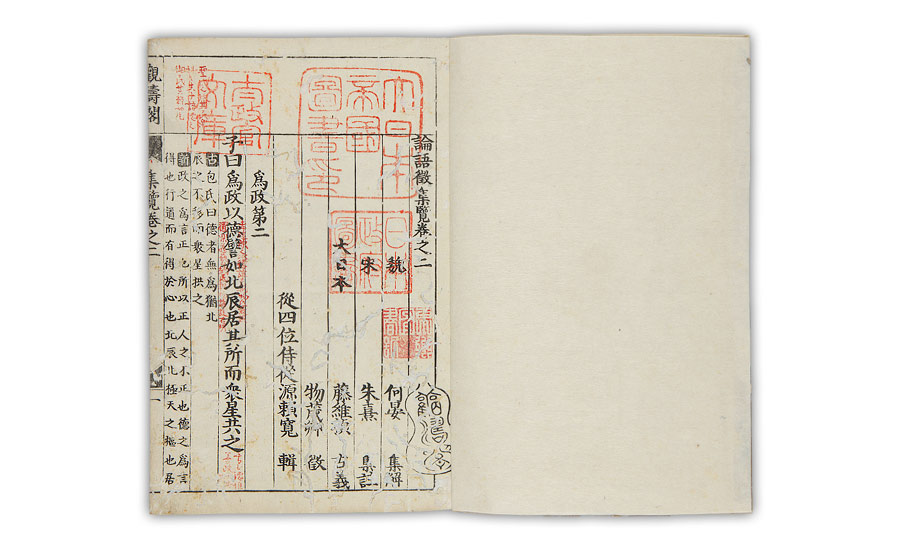 論語徵集覽卷之二
魏 何晏 集解
宋 朱熹 集註
大日本 藤維楨 古義
物茂卿 徵
從四位侍從源賴寬 輯
爲政第二
子曰爲政以德譬如北辰居其所而衆星共之
古包氏曰德者無爲猶北
辰之不移而衆星拱之
新政之爲言正也所以正人之不正也德之爲言
得也行道而有得於心也北辰北極天之樞也居
觀濤閣
集覽卷之二
一
大日本帝國圖書印
太政官文庫
日本政府圖書